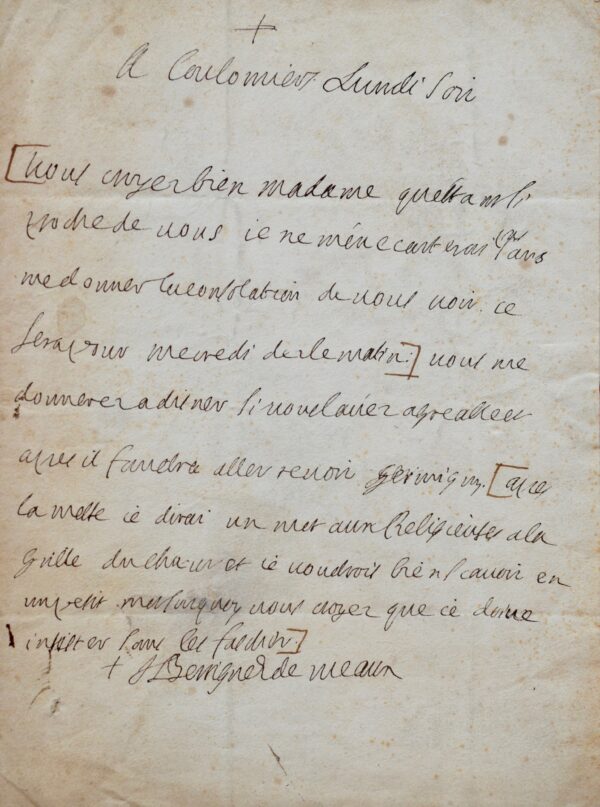 +
A Coulomiers Lundi Soir
[vous croyez bien madame questant si
proche de vous ie ne m'en ecarterai pas sans
me donner la consolation de vous voir. ce
sera pour mecredi des le matin.] vous me
donnerez a disner si vous l'avez agreable et
apres il faudra aller revoir germigny. [apres
la messe ie dirai un mot aux Religieuses a la
grille du chœur et ie voudrois bien scavoir en
un petit mot surquoy vous croyez que ie doive
insister sans les fascher.]
+ J Benigne e de meaux